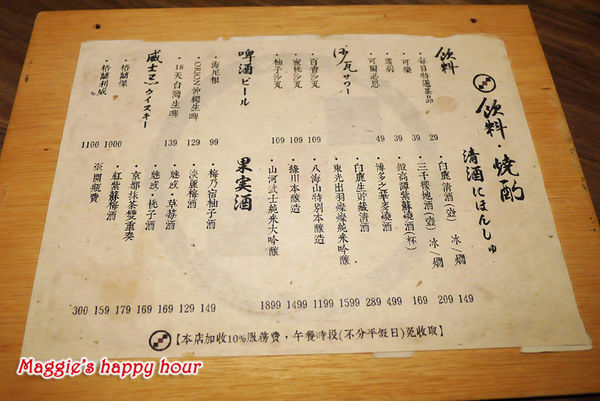 飲料・燒酌
清酒にほんしゅ
飲料
・每日特選茶品 29
・可樂 39
・雪碧 39
・可爾必思 49
沙瓦サワー
・百香沙瓦 109
・蜜桃沙瓦 109
・柚子沙瓦 109
啤酒ビール
・海尼根 99
・ORION沖繩生啤 129
・18天台灣生啤 139
威士忌ウイスキー
・格蘭傑 1000
・格蘭利威 1100
・白鹿清酒(壺) 冰/燗 149
・三千櫻地酒(壺) 冰/燗 209
・鍛高譚紫蘇燒酒(杯) 169
・博多之華麥燒酒 499
・白鹿生貯藏清酒 289
・東光出羽燦燦純米吟釀 1599
・八海山特別本釀造 1199
・綠川本釀造 1499
・山河武士純米大吟釀 1899
果実酒
・梅乃宿柚子酒 149
・淡麗梅酒 129
・魅惑・草莓酒 139
・魅惑・桃子酒 169
・京都抹茶雙重奏 169
・紅紫蘇梅酒 179
159
※開瓶費 300
【本店加收10%服務費，午餐時段(不分平假日)免收取】
Maggie's happy hour